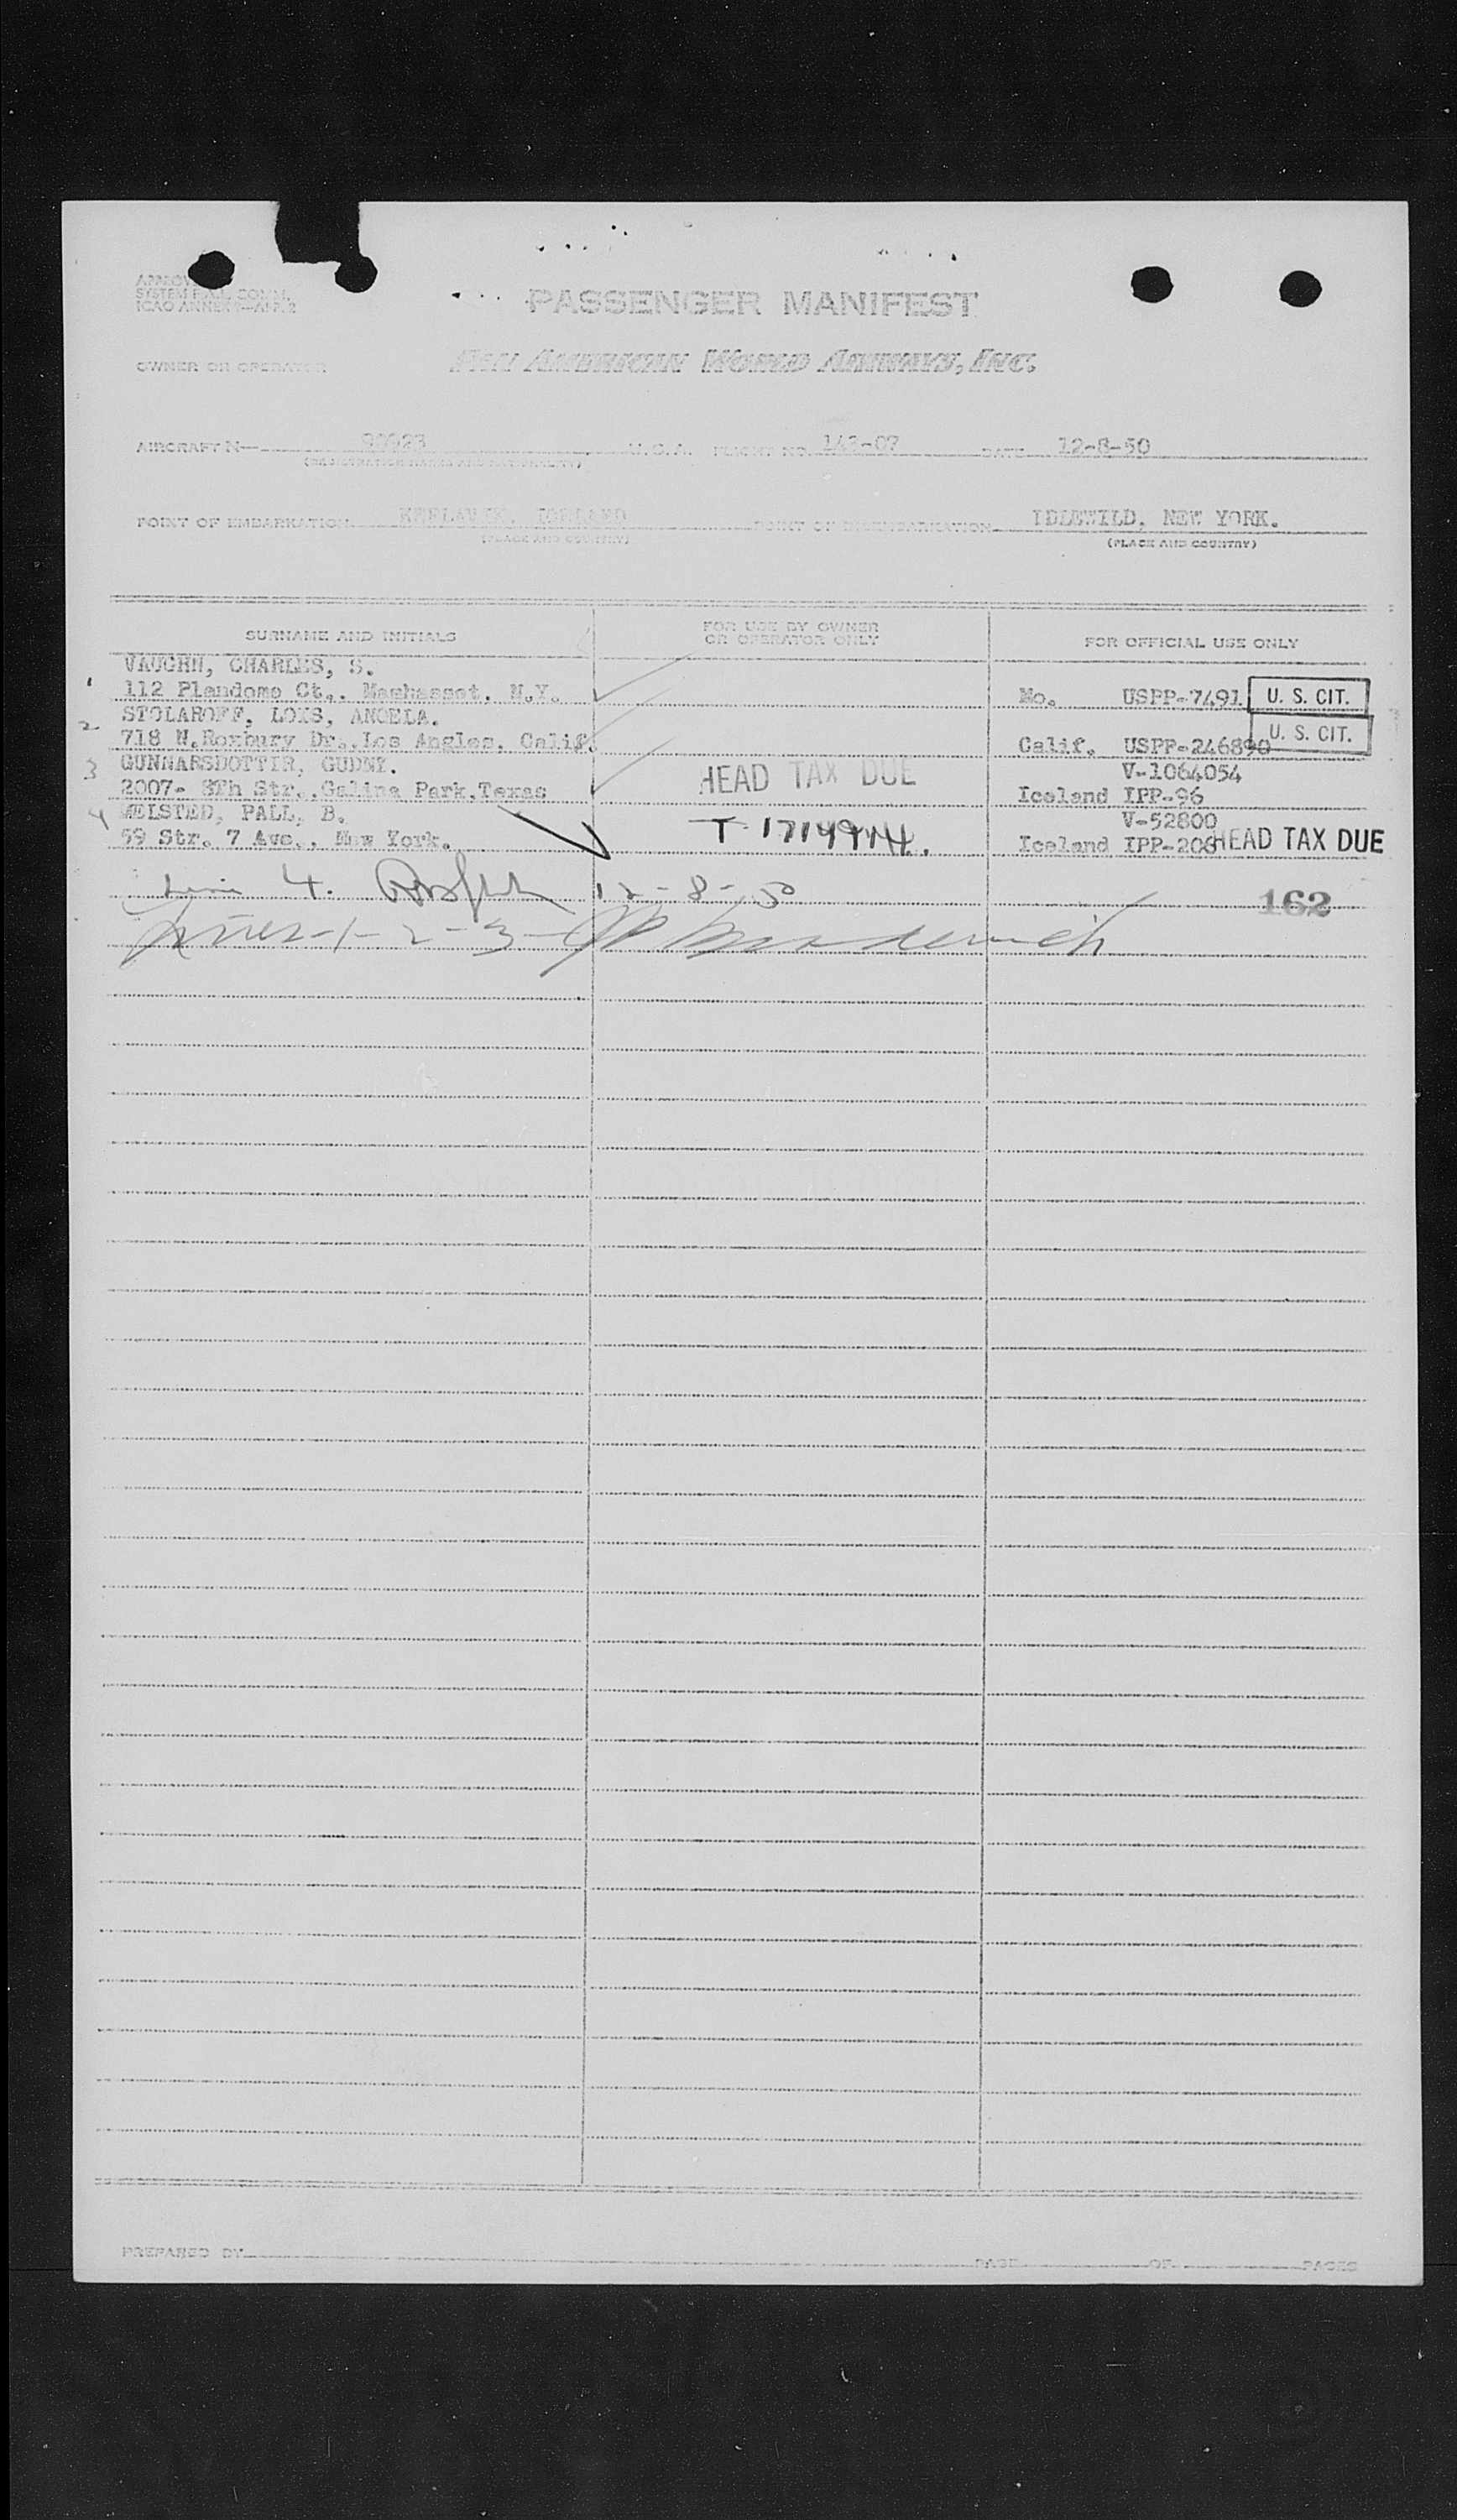 SYSTEM
ICAO ANNEX
PASSENGER MANIFEST
OWNER OR OPERATOR
PAN AMERICAN WORLD AIRWAYS, INC.
AIRCRAFT N— 90923 U.S.A. FLIGHT NO. 143-07 DATE 12-8-50
(REGISTRATION MARKS AND NATIONALITY)
POINT OF EMBARKATION KEFLAVIK, ICELAND POINT OF DISEMBARKATION IDLEWILD, NEW YORK.
(PLACE AND COUNTRY) (PLACE AND COUNTRY)
SURNAME AND INITIALS
FOR USE BY OWNER
OR OPERATOR ONLY
FOR OFFICIAL USE ONLY
VAUGHN, CHARLES, S.
1 112 Plandome Ct,. Manhasset, N.Y. No. USPP-7491 U. S. CIT.
2 STOLAROFF, LOIS, ANGELA.
718 N.Roxbury Dr.,Los Angles, Calif. Calif. USPP-246890 U. S. CIT.
3 GUNNARSDOTTIR, GUDNY. V-1064054
2007- 8Th Str.,Galina Park,Texas HEAD TAX DUE Iceland IPP-96
4 MELSTED, PALL, B. V-52800
59 Str. 7 Ave., New York. T-1714944. Iceland IPP-206 HEAD TAX DUE
Line 4. 12-8-50 162
Lines-1-2-3-
PREPARED BY PAGE OF PAGES